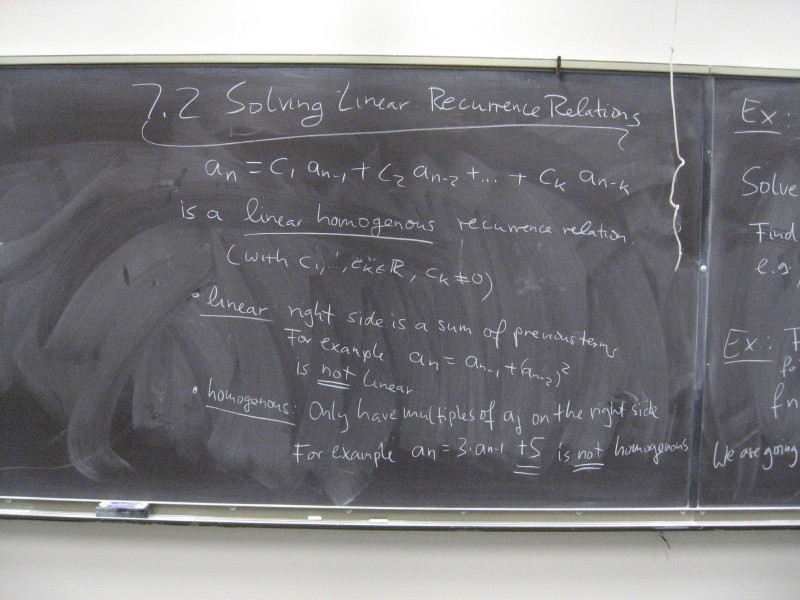 7.2 Solving Linear Recurrence Relations
aₙ = C₁ aₙ₋₁ + C₂ aₙ₋₂ + ... + Cₖ aₙ₋ₖ
is a linear homogenous recurrence relation.
(with C₁, ..., Cₖ ∈ ℝ, Cₖ ≠ 0)
• linear right side is a sum of previous terms
For example aₙ = aₙ₋₁ + (aₙ₋₂)²
is not linear
• homogenous: Only have multiples of aⱼ on the right side
For example aₙ = 3·aₙ₋₁ +5 is not homogenous
Ex:
Solve
Find
e.g.
Ex: F
fo
fn
We are going